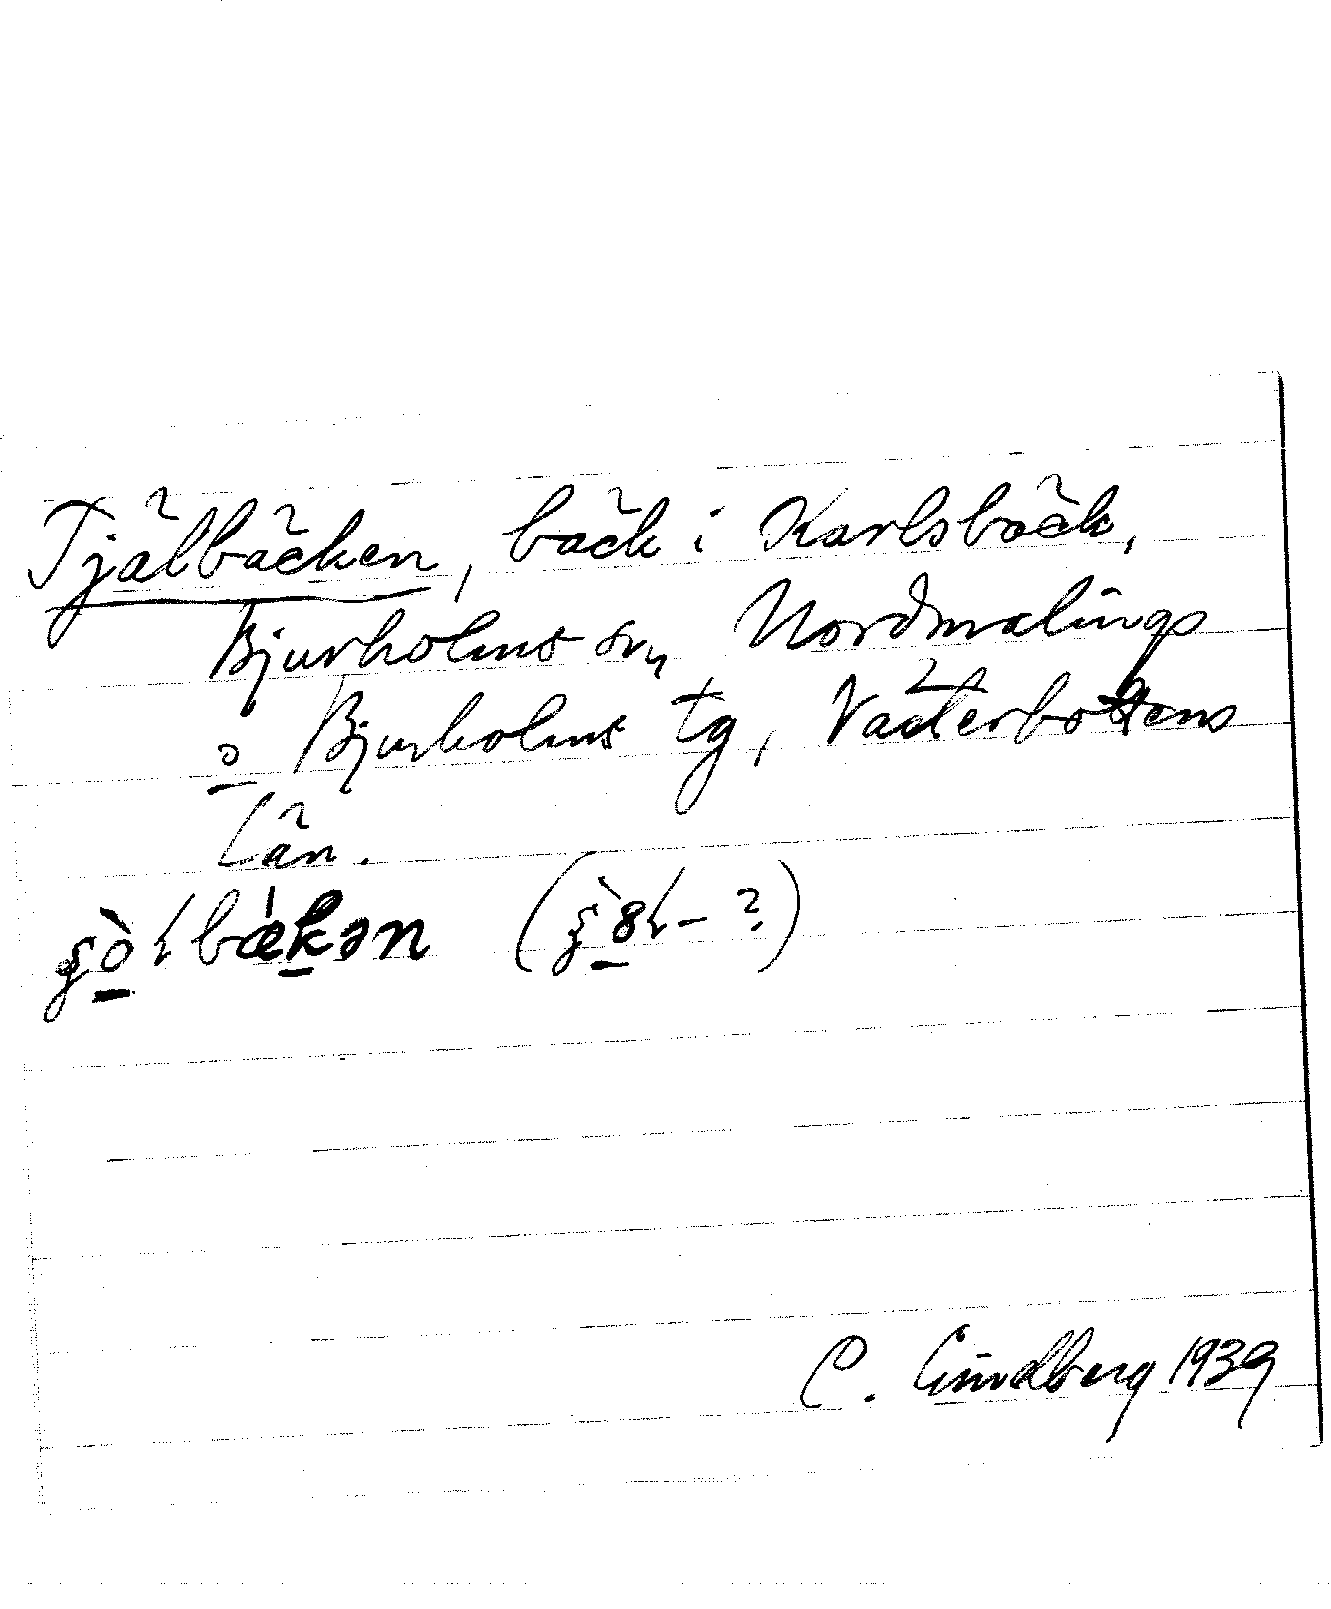 Tjälbäcken, bäck i Karlsbäck,
Bjurholms sn, Nordmalings
o Bjurholms tg, Västerbottens
Län.
bækən ( – ?)
C. Lindberg 1939